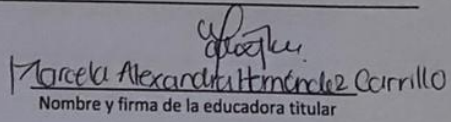 Marcela Alexandra Hernández Carrillo
Nombre y firma de la educadora titular